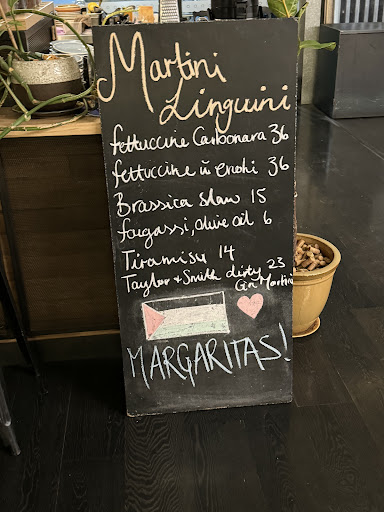 Martini
Linguini
fettuccine Carbonara 36
fettuccine 36
Brassica Slaw 15
fougassi, olive oil 6
Tiramisu 14
Taylor + Smith dirty 23
Gin Martini
MARGARITAS!